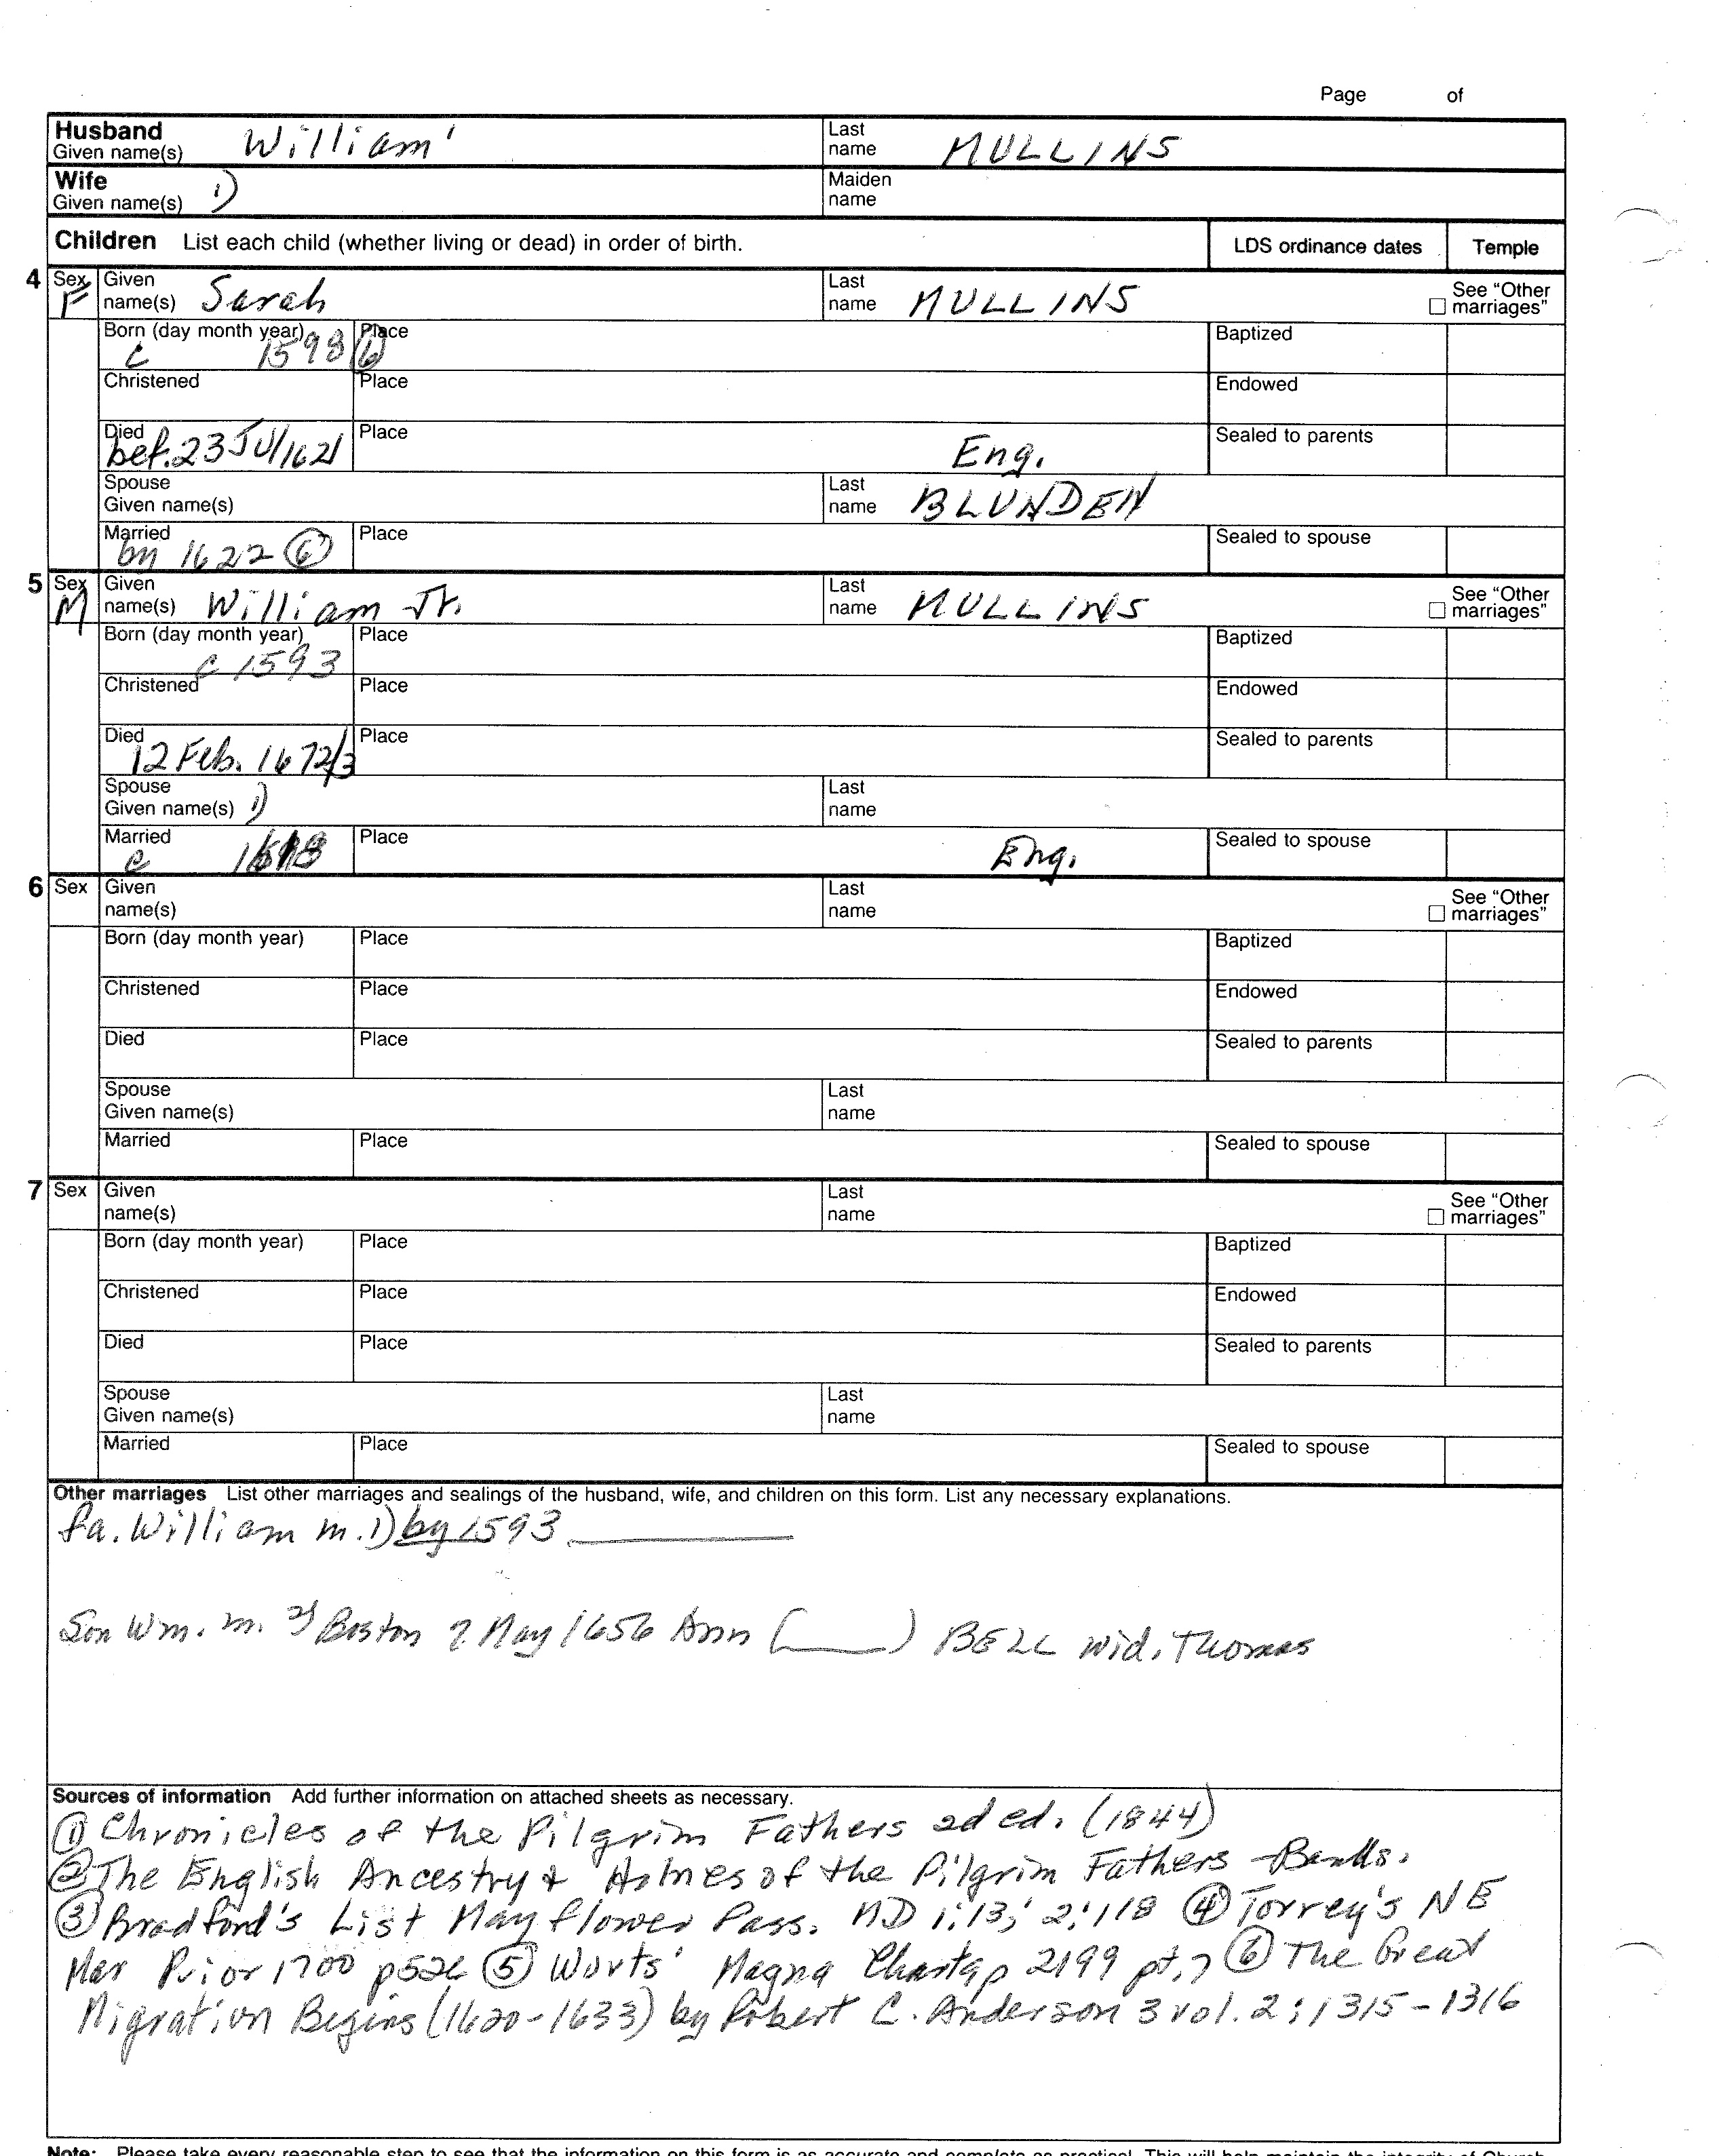 Page of
Husband Given name(s) William' Last name MULLINS
Wife Given name(s) 1) Maiden name
Children List each child (whether living or dead) in order of birth. LDS ordinance dates Temple
4 Sex F Given name(s) Sarah Last name MULLINS See "Other marriages"
Born (day month year) c 1598 ⑥ Place Baptized
Christened Place Endowed
Died bef. 23 Jul 1621 Place Eng. Sealed to parents
Spouse Given name(s) Last name BLUNDEN
Married by 1622 ⑥ Place Sealed to spouse
5 Sex M Given name(s) William Jr. Last name MULLINS See "Other marriages"
Born (day month year) c 1593 Place Baptized
Christened Place Endowed
Died 12 Feb. 1672/3 Place Sealed to parents
Spouse Given name(s) 1) Last name
Married c Place Eng. Sealed to spouse
6 Sex Given name(s) Last name See "Other marriages"
Born (day month year) Place Baptized
Christened Place Endowed
Died Place Sealed to parents
Spouse Given name(s) Last name
Married Place Sealed to spouse
7 Sex Given name(s) Last name See "Other marriages"
Born (day month year) Place Baptized
Christened Place Endowed
Died Place Sealed to parents
Spouse Given name(s) Last name
Married Place Sealed to spouse
Other marriages List other marriages and sealings of the husband, wife, and children on this form. List any necessary explanations.
fa. William m. 1) by 1593 ______
Son Wm. m. Boston May 1656 Ann (____) BELL wid. Thomas
Sources of information Add further information on attached sheets as necessary.
① Chronicles of the Pilgrim Fathers 2d ed. (1844)
② The English Ancestry & Homes of the Pilgrim Fathers - Banks.
③ Bradford's List Mayflower Pass. MD 1:13; 2:118 ④ Torrey's NE
Mar Prior 1700 ⑤ Wurts' Magna Charta p 2199 pt. 7 ⑥ The Great
Migration Begins (1620-1633) by Robert C. Anderson 3 vol. 2:1315-1316
Note: Please take every reasonable step to see that the information on this form is as accurate and complete as practical. This will help maintain the integrity of Church